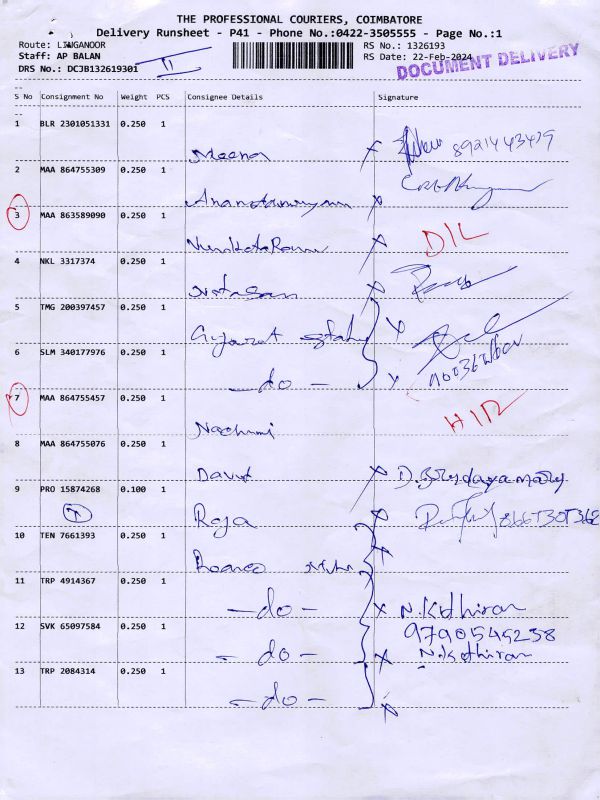 THE PROFESSIONAL COURIERS, COIMBATORE
Delivery Runsheet - P41 - Phone No.:0422-3505555 - Page No.:1
Route: LINGANOOR
RS No.: 1326193
Staff: AP BALAN
RS Date: 22-Feb-2024
DRS No.: DCJB132619301
II
DOCUMENT DELIVERY
S No Consignment No Weight PCS Consignee Details Signature
1 BLR 2301051331 0.250 1
Meena 8921443479
2 MAA 864755309 0.250 1
3 MAA 863589090 0.250 1
D/L
4 NKL 3317374 0.250 1
Natasan
5 TMG 200397457 0.250 1
Gujarat
6 SLM 340177976 0.250 1
-do-
7 MAA 864755457 0.250 1
8 MAA 864755076 0.250 1
David
9 PRO 15874268 0.100 1
Raja
10 TEN 7661393 0.250 1
11 TRP 4914367 0.250 1
-do- N.Kathiran
9790545238
12 SVK 65097584 0.250 1
-do- N.Kathiran
13 TRP 2084314 0.250 1
-do-